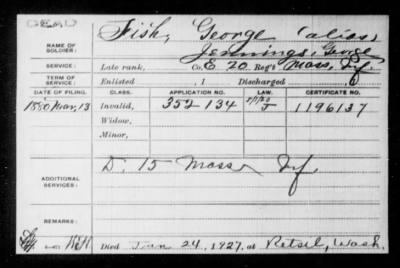 DEAD
NAME OF SOLDIER: Fish, George (alias)
Jennings, George
SERVICE: Late rank, Co. E 20 Reg't Mass. Inf.
TERM OF SERVICE: Enlisted , 1 Discharged , 1
DATE OF FILING. CLASS. APPLICATION NO. LAW. CERTIFICATE NO.
1880 Mar, 13 Invalid, 352 134 J 1196137
Widow,
Minor,
ADDITIONAL SERVICES: D. 15 Mass Inf
REMARKS:
Died Jan 24, 1927, at Retsil, Wash.